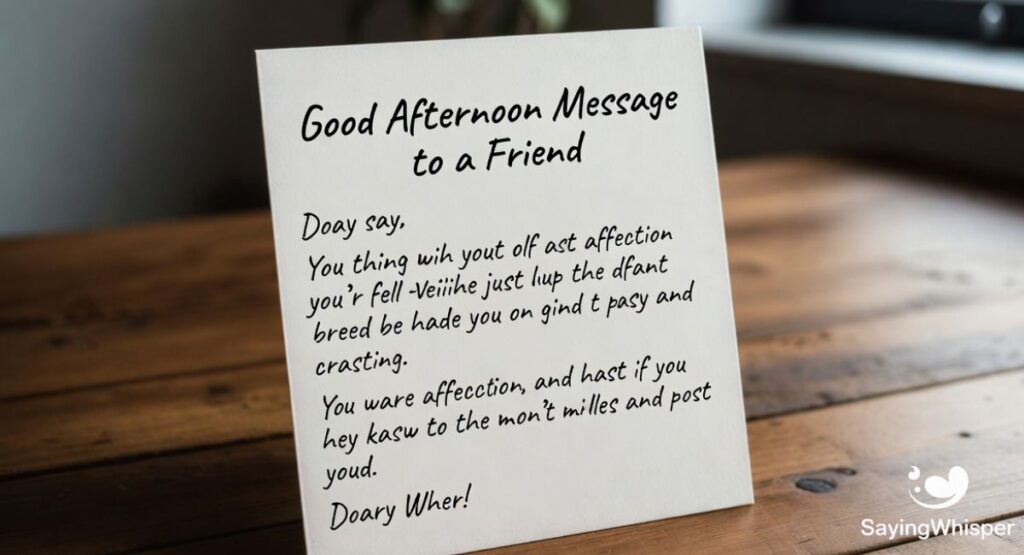 Good Afternoon Message
to a Friend
Doay say,
You thing wih yout olf ast affection
you'r fell -Veiiihe just lıup the dfant
breed be hade you on gind t pasy and
crasting.
You ware affecction, and hast if you
hey kasw to the mon't milles and post
youd.
Doary Wher!
SayingWhisper